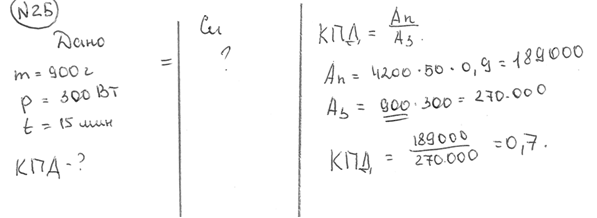 N25
Дано
m = 900 г
p = 300 Вт
t = 15 мин
КПД - ?
=
Си
?
КПД = Aп / Aз.
Aп = 4200 · 50 · 0,9 = 189000
Aз = 900 · 300 = 270.000
КПД = 189000 / 270.000 = 0,7.